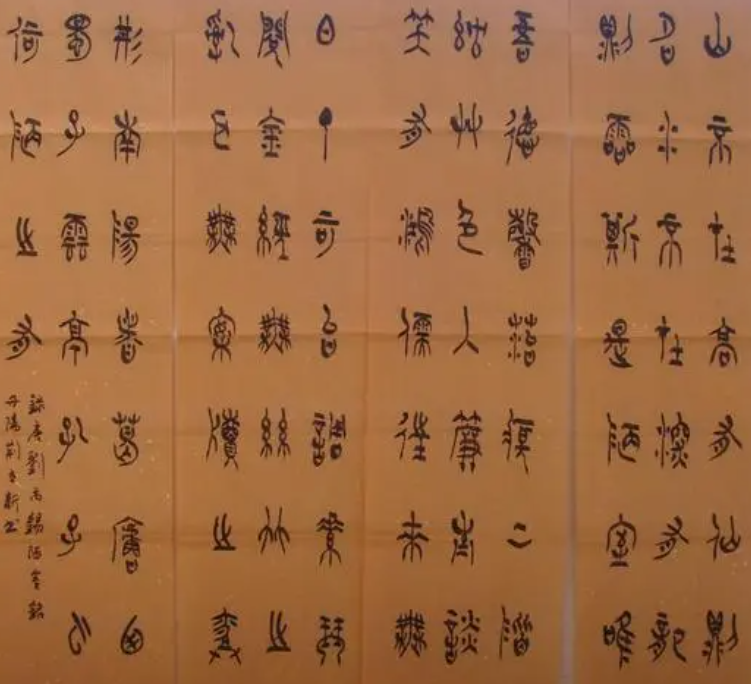 山不在高有仙則
名水不在深有龍
則靈斯是陋室唯
吾德馨苔痕上階
綠草色入簾青談
笑有鴻儒往來無
白丁可以調素琴
閱金經無絲竹之
亂耳無案牘之勞
形南陽諸葛廬西
蜀子雲亭孔子云
何陋之有
錄唐劉禹錫陋室銘
丹陽荊新書